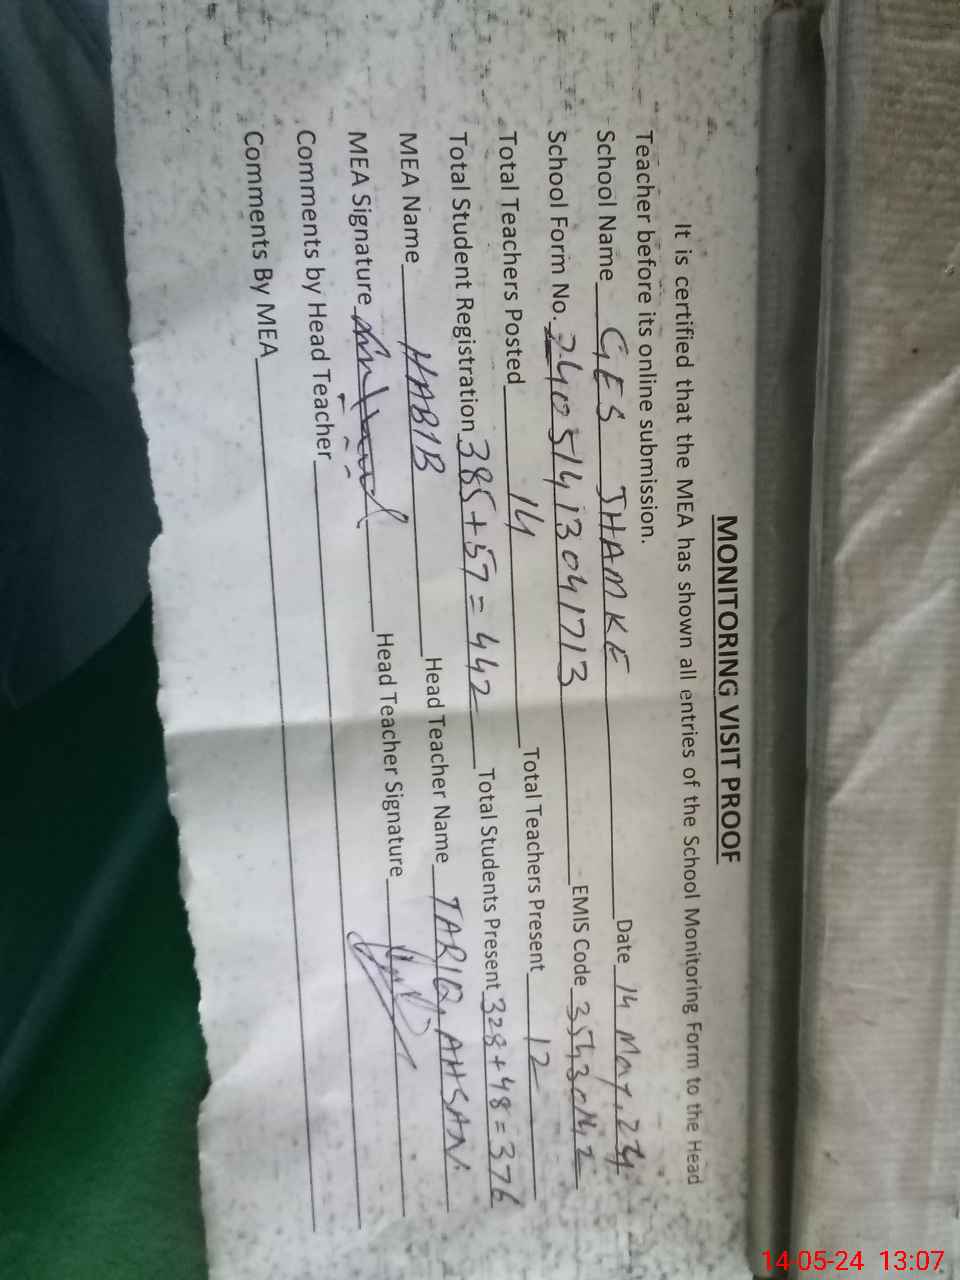 MONITORING VISIT PROOF
It is certified that the MEA has shown all entries of the School Monitoring Form to the Head
Teacher before its online submission.
School Name GES JHAMKE Date 14 May, 24
School Form No. 24051413041713 EMIS Code
Total Teachers Posted 14 Total Teachers Present 12
Total Student Registration 385+57=442 Total Students Present 328+48=376
MEA Name HABIB Head Teacher Name TARIQ AHSAN
MEA Signature Head Teacher Signature
Comments by Head Teacher
Comments By MEA
14-05-24 13:07